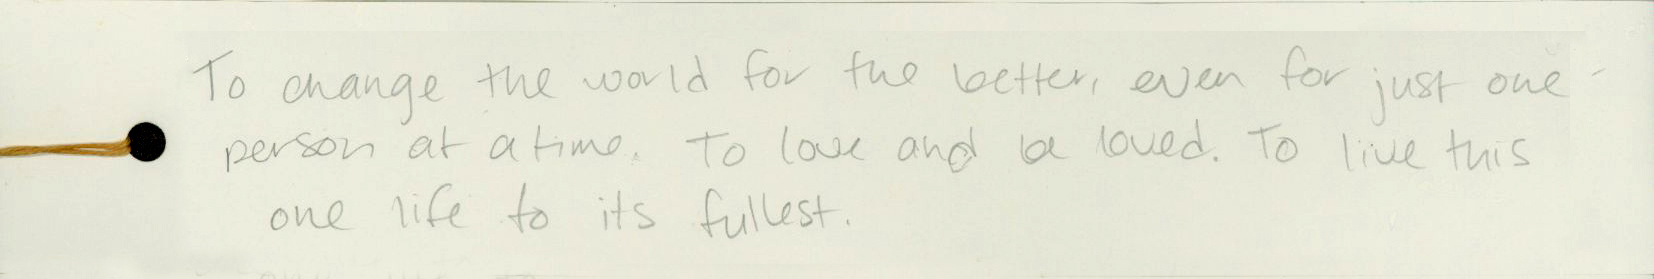 To change the world for the better, even for just one
person at a time. To love and be loved. To live this
one life to its fullest.